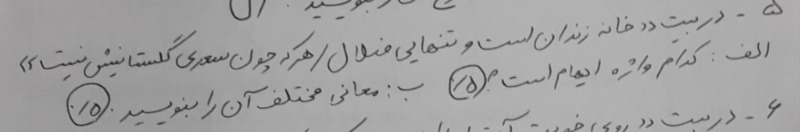 ۵ - در بیت «خانه زندان است و تنهایی ضلال / هر که چون سعدی گلستانیش نیست»
الف: کدام واژه ایهام است؟ (۵/۰) ب: معانی مختلف آن را بنویسید. (۵/۰)
۶ - در بیت «روی